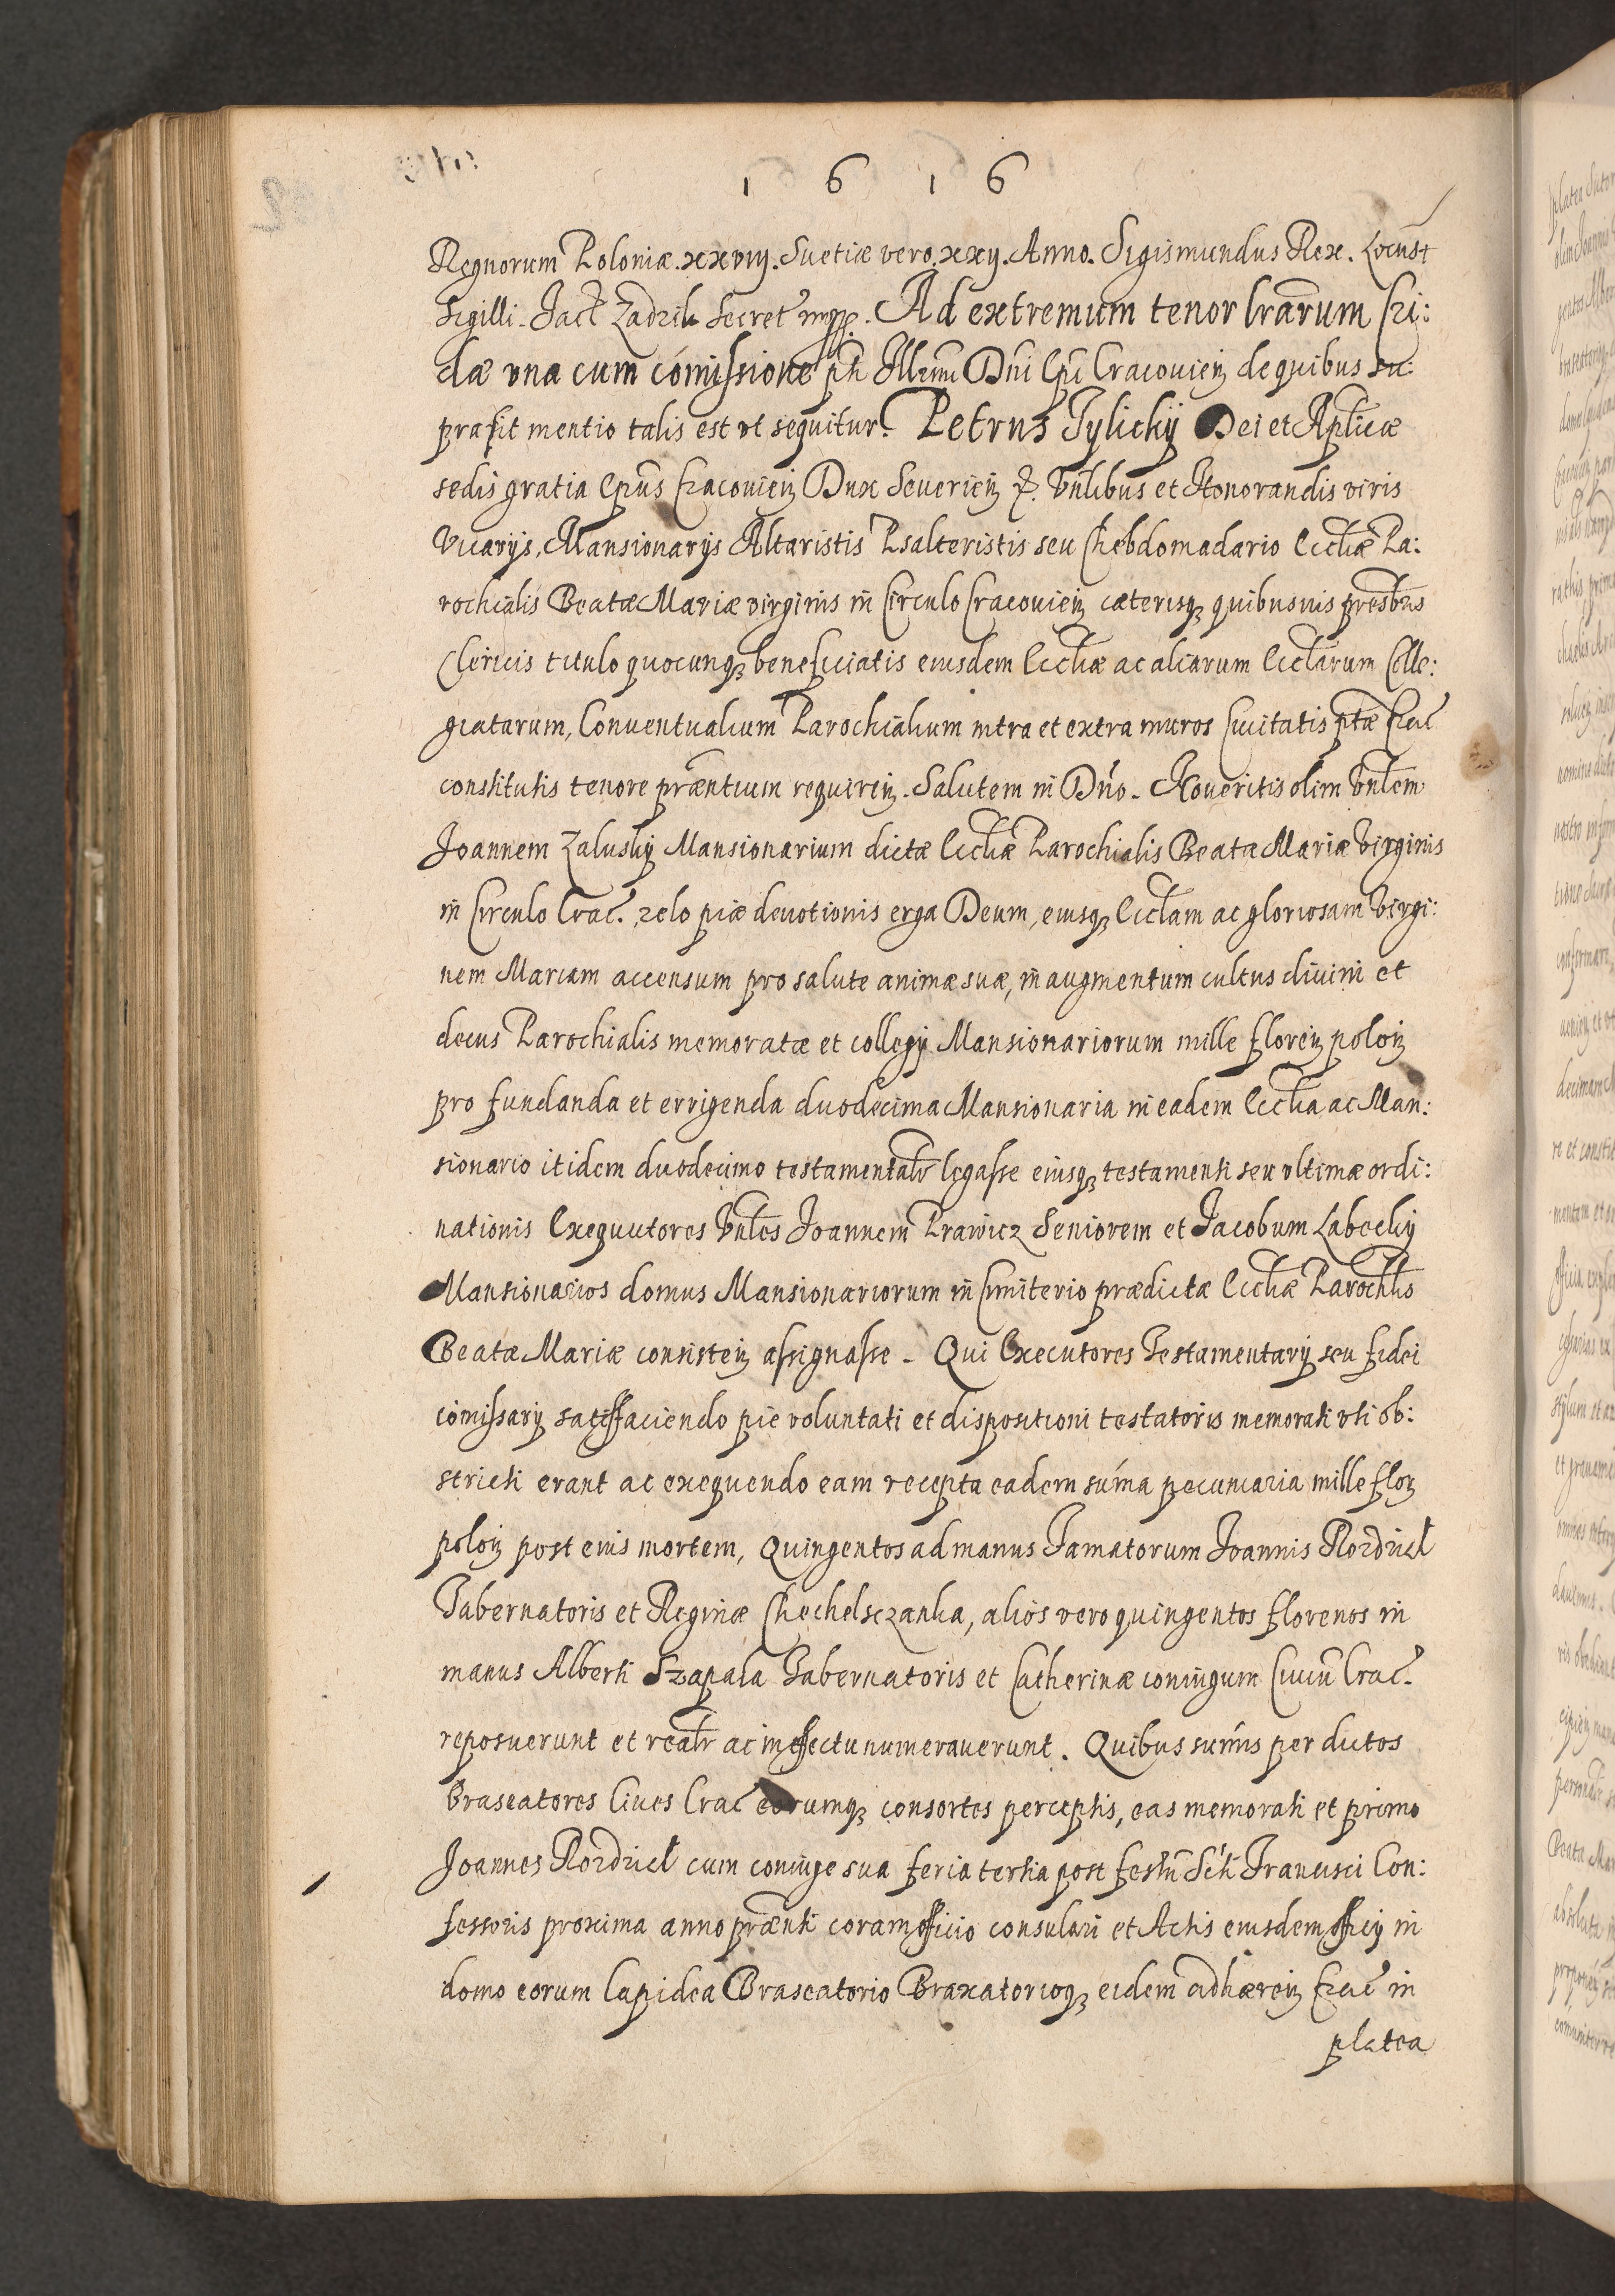 1 6 1 6
Regnorum Poloniæ. xxviij. Suetiæ vero. xxij. Anno. Sigismundus Rex. Locus+
Sigilli. Jacˀ Zadzik Secretˀ mpp. Ad extremum tenor lrarum Cri:
dæ vna cum comissione ph Illrmi Dni Epi Cracouien̄ de quibus su:
pra fit mentio talis est vt sequitur. Petrus Tylicky Dei et Aplicæ
sedis gratia Epus Cracouien̄ Dux Seuerien̄ &. Vnlibus et Honorandis viris
Vicarijs, Mansionarijs Altaristis Psalteristis seu Chebdomadario Eccliæ Pa:
rochialis Beatæ Mariæ virginis in Circulo Cracouien̄ cæterisq3 quibusuis presbris
Clericis titulo quocunq3 beneficiatis eiusdem Eccliæ ac aliarum Ecclarum Colle:
giatarum, Conuentualium Parochialium intra et extra muros Ciuitatis ptæ Crac
constitutis tenore præntium requiren̄. Salutem in Dno. Noueritis olim Vnlem
Joannem Zalusky Mansionarium dictæ Eccliæ Parochialis Beatæ Mariæ Virginis
in Circulo Crac. zelo piæ deuotionis erga Deum, eiusq3 Ecclam ac gloriosam Virgi:
nem Mariam accensum pro salute animæ suæ, in augmentum cultus diuini et
decus Parochialis memoratæ et collegij Mansionariorum mille floren̄ polon̄
pro fundanda et errigenda duodecima Mansionaria in eadem Ecclia ac Man:
sionario itidem duodecimo testamentalr legasse eiusq3 testamenti seu vltimæ ordi:
nationis Exequutores Vnles Joannem Prawicz Seniorem et Jacobum Labecky
Mansionarios domus Mansionariorum in Cimiterio prædictæ Eccliæ Parochlis
Beatæ Mariæ consisten̄ assignasse. Qui Executores Testamentarij seu fidei
comissarij satisfaciendo piè voluntati et dispositioni testatoris memorati vti ob:
stricti erant ac exequendo eam recepta eadem suma pecuniaria mille flon̄
polon̄ post eius mortem, Quingentos ad manus Famatorum Joannis Rozdziel
Tabernatoris et Reginæ Chechelsczanka, aliòs vero quingentos florenos in
manus Alberti Szapala Tabernatoris et Catherinæ coniugum Ciuiu Crac.
reposuerunt et realr ac in effectu numerauerunt. Quibus sumis per dictos
Braseatores Ciues Crac eorumq3 consortes perceptis, eas memorati et primo
Joannes Rozdziel cum coniuge sua feria tertia post festu Scti Francisci Con:
fessoris proxima anno prænti coram officio consulari et Actis eiusdem officij in
domo eorum lapidea Braseatorio Braxatorioq3 eidem adhæren̄ Crac in
platea